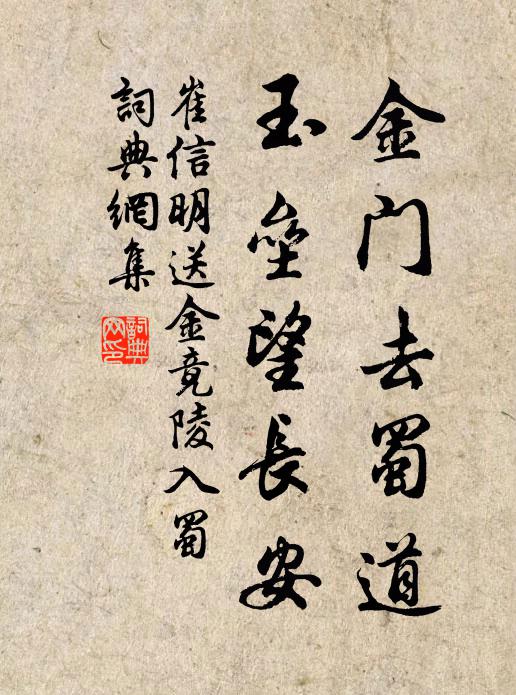 金门去蜀道
玉垒望長安
崔信明送金竟陵入蜀
詞典網集
詞典网印